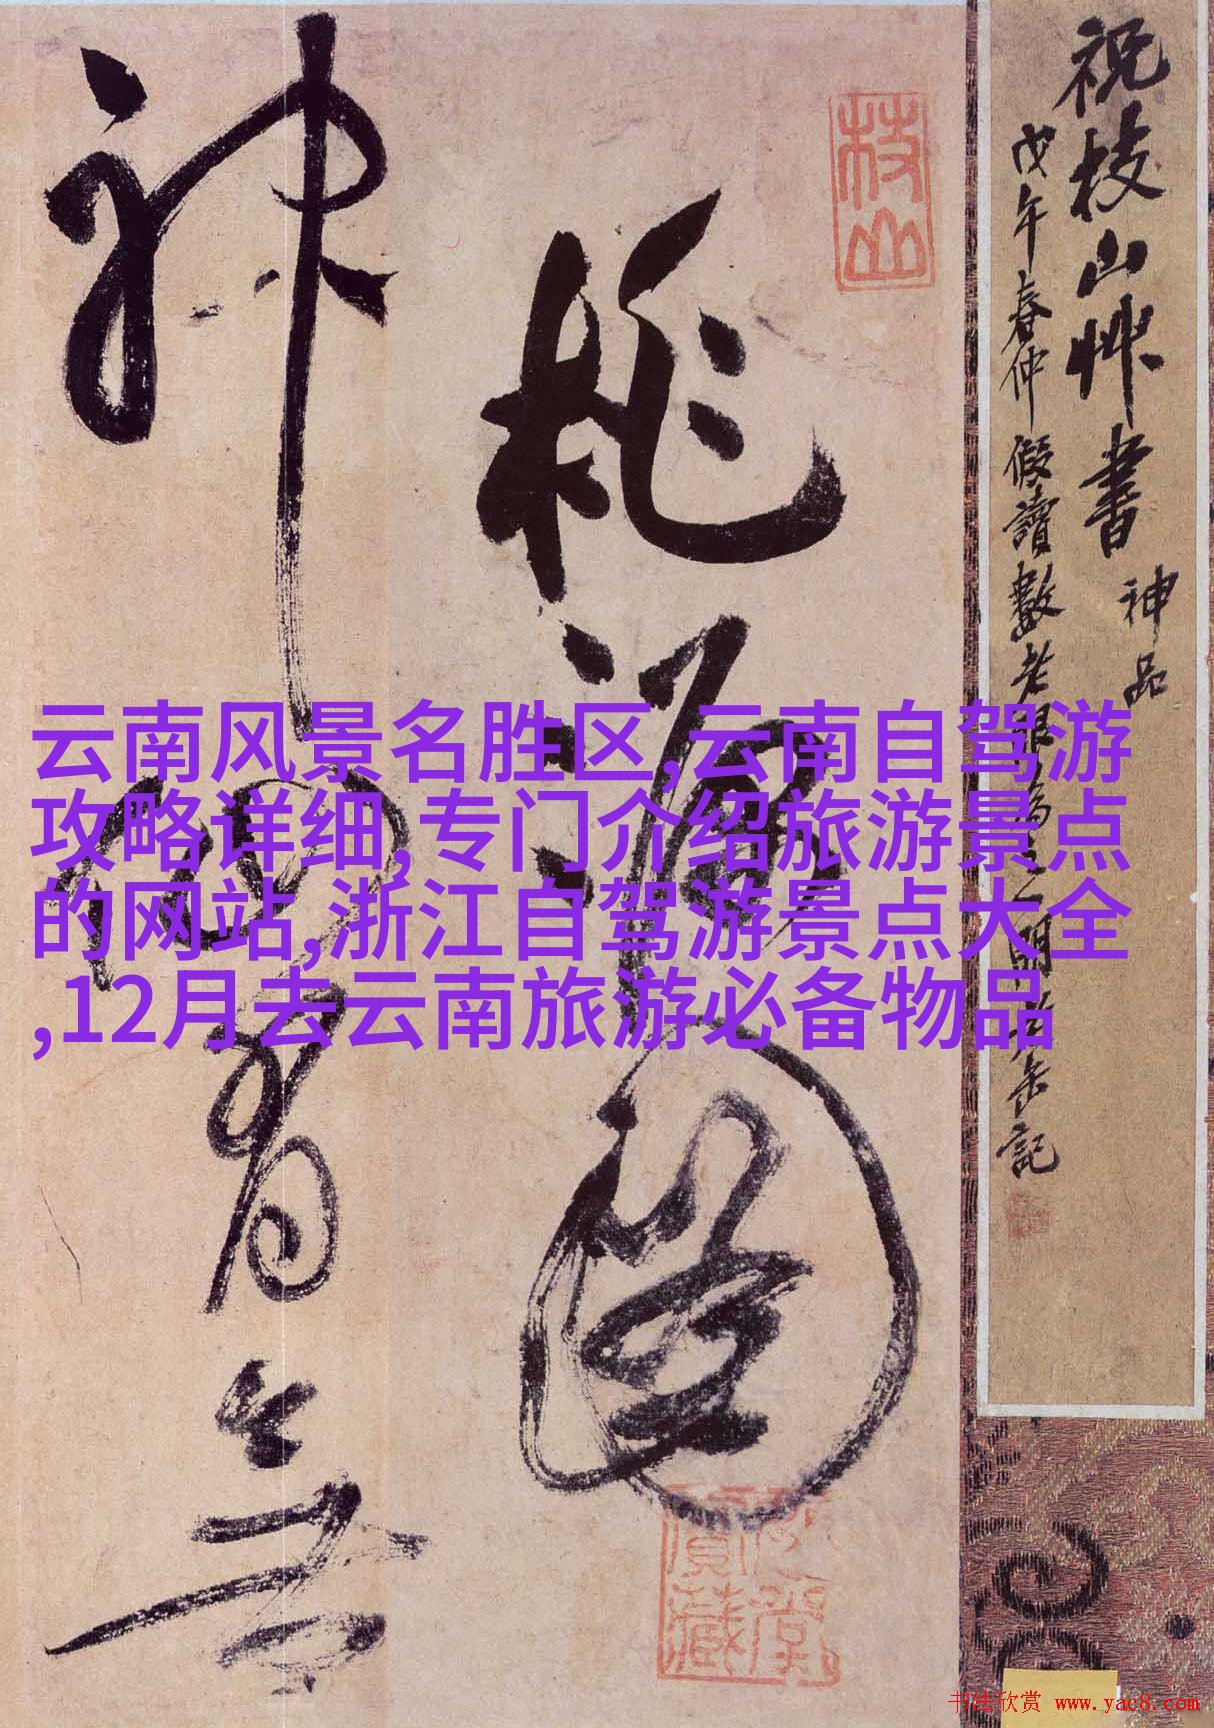 祝枝山艸書 神品
戊午春仲 假讀數老
記
枝山
桃源圖
神仙有無
云南风景名胜区,云南自驾游
攻略详细,专门介绍旅游景点
的网站,浙江自驾游景点大全
,12月去云南旅游必备物品
书法欣赏 www.yac8.com